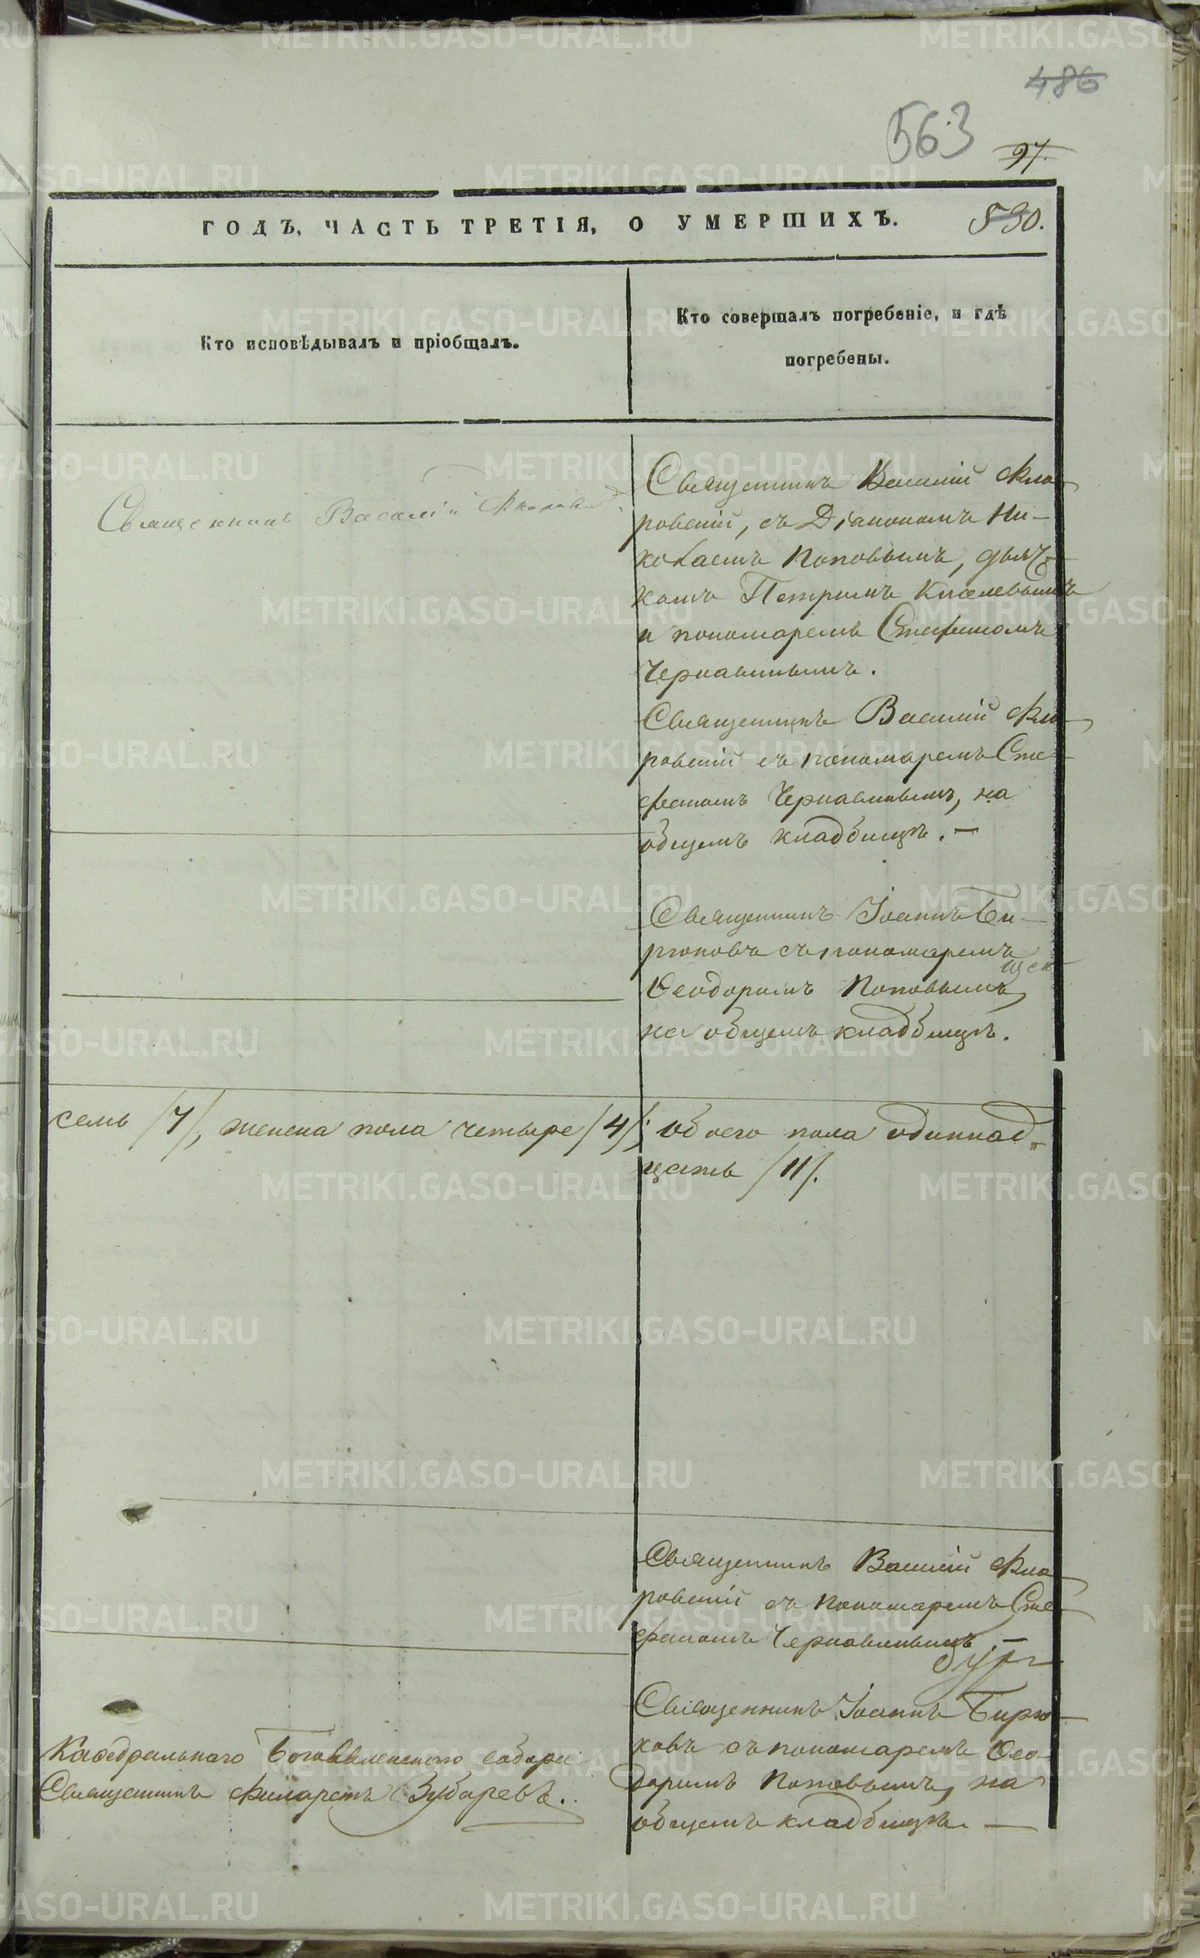 486
563
97.
ГОДЪ, ЧАСТЬ ТРЕТІЯ, О УМЕРШИХЪ. 530.
Кто исповѣдывалъ и пріобщалъ.
Кто совершалъ погребеніе, и гдѣ
погребены.
Священникъ Василій Флоровскі
Священникъ Василій Фло-
ровскій, съ Діакономъ Ни-
колаемъ Поповымъ, дьяч-
комъ Петромъ Киселевымъ
и пономаремъ Стефаномъ
Чернавинымъ.
Священникъ Василій Фло-
ровскій съ пономаремъ Сте-
фаномъ Чернавинымъ, на
общемъ кладбищѣ. —
Священникъ Іоаннъ Би-
рюковъ съ пономаремъ
Ѳеодоромъ Поповымъ,
на общемъ кладбищѣ.
семь /7/, женска пола четыре /4/; обоего пола одиннад-
цать /11/.
Священникъ Василій Фло-
ровскій съ пономаремъ Сте-
фаномъ Чернавинымъ. —
Священникъ Іоаннъ Бирю-
ковъ съ пономаремъ Ѳео-
доромъ Поповымъ, на
общемъ кладбищѣ. —
Кафедральнаго Богоявленскаго собора
Священникъ Филаретъ Зубаревъ.
METRIKI.GASO-URAL.RU